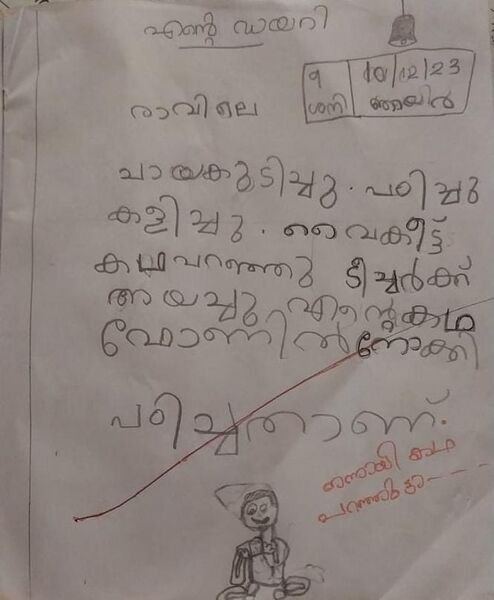 എന്റെ ഡയറി
9 10/12/23
ശനി ഞായർ
രാവിലെ
ചായകുടിച്ചു. പഠിച്ചു
കളിച്ചു. വൈകീട്ട്
കഥപറഞ്ഞു ടീച്ചർക്ക്
അയച്ചു എന്റെകഥ
ഫോണിൽനോക്കി
പഠിച്ചതാണ്.
നന്നായി കഥ
പറഞ്ഞൂട്ടോ----